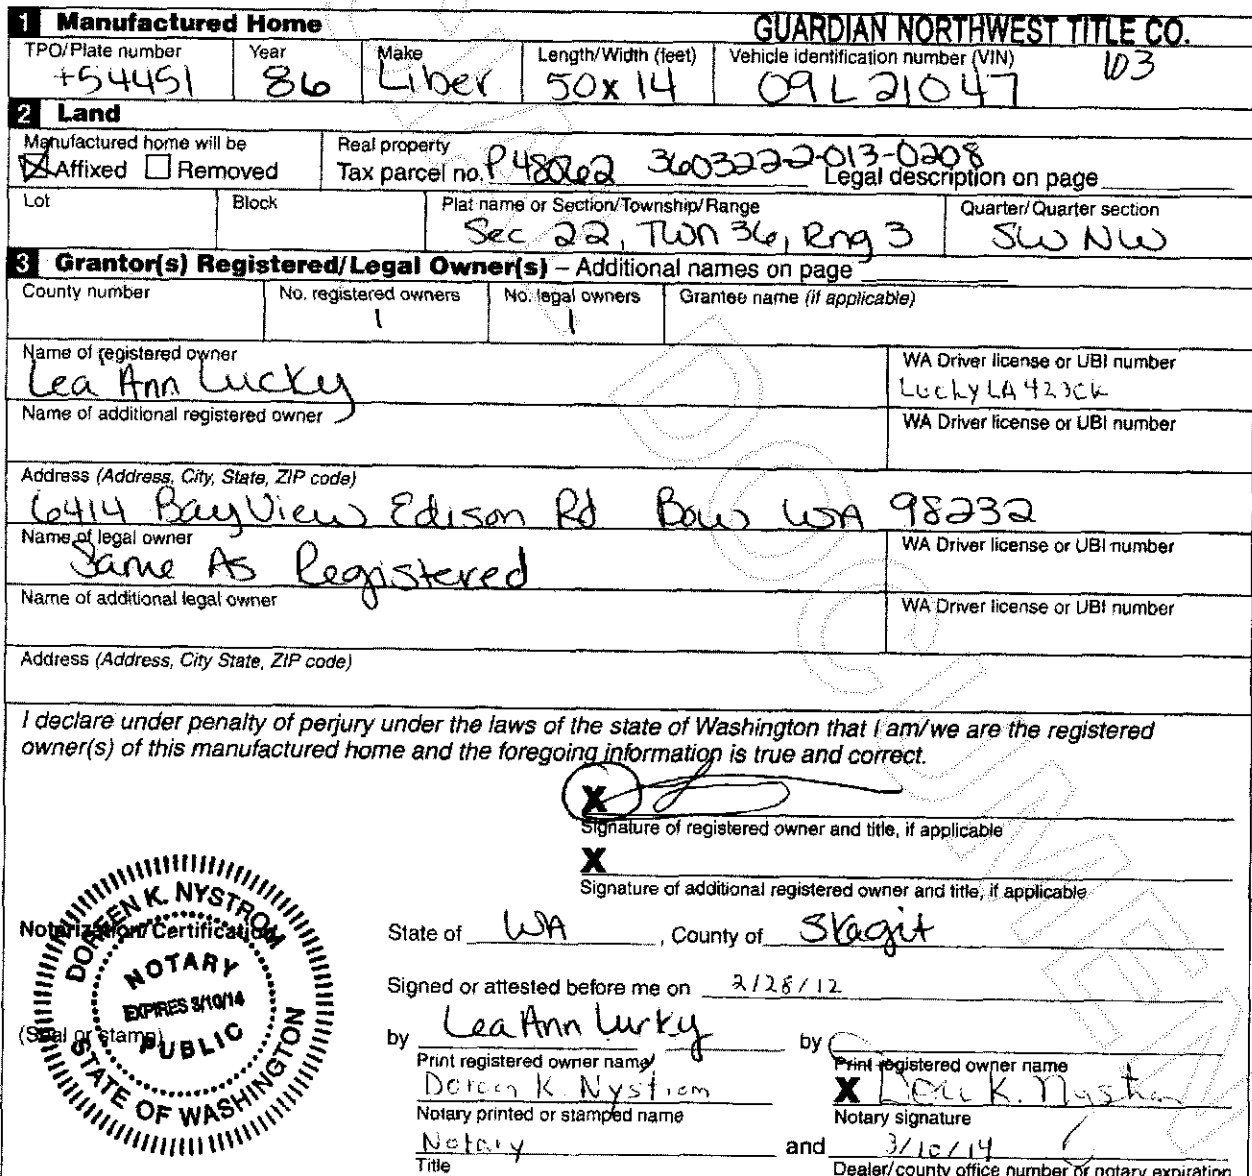 1 Manufactured Home GUARDIAN NORTHWEST TITLE CO.
TPO/Plate number Year Make Length/Width (feet) Vehicle identification number (VIN) 103
+54451 86 Liber 50x14 09L21047
2 Land
Manufactured home will be Real property
Affixed Removed Tax parcel no. P48062 360322-2-013-0208 Legal description on page
Lot Block Plat name or Section/Township/Range Quarter/Quarter section
Sec 22, Twn 36, Rng 3 SW NW
3 Grantor(s) Registered/Legal Owner(s) – Additional names on page
County number No. registered owners No. legal owners Grantee name (if applicable)
1 1
Name of registered owner WA Driver license or UBI number
Lea Ann Lucky LuckyLA423CK
Name of additional registered owner WA Driver license or UBI number
Address (Address, City, State, ZIP code)
6414 BayView Edison Rd Bow WA 98232
Name of legal owner WA Driver license or UBI number
Same As Registered
Name of additional legal owner WA Driver license or UBI number
Address (Address, City State, ZIP code)
I declare under penalty of perjury under the laws of the state of Washington that I am/we are the registered
owner(s) of this manufactured home and the foregoing information is true and correct.
X
Signature of registered owner and title, if applicable
X
Signature of additional registered owner and title, if applicable
Notarization/Certification State of WA, County of Skagit
DOREEN K. NYSTROM
NOTARY
EXPIRES 3/10/14
PUBLIC
STATE OF WASHINGTON
(Seal or stamp)
Signed or attested before me on 2/28/12
by Lea Ann Lucky by
Print registered owner name Print registered owner name
Doreen K. Nystrom X K. Nystrom
Notary printed or stamped name Notary signature
Notary and 3/10/14
Title Dealer/county office number or notary expiration
DOCUMENT